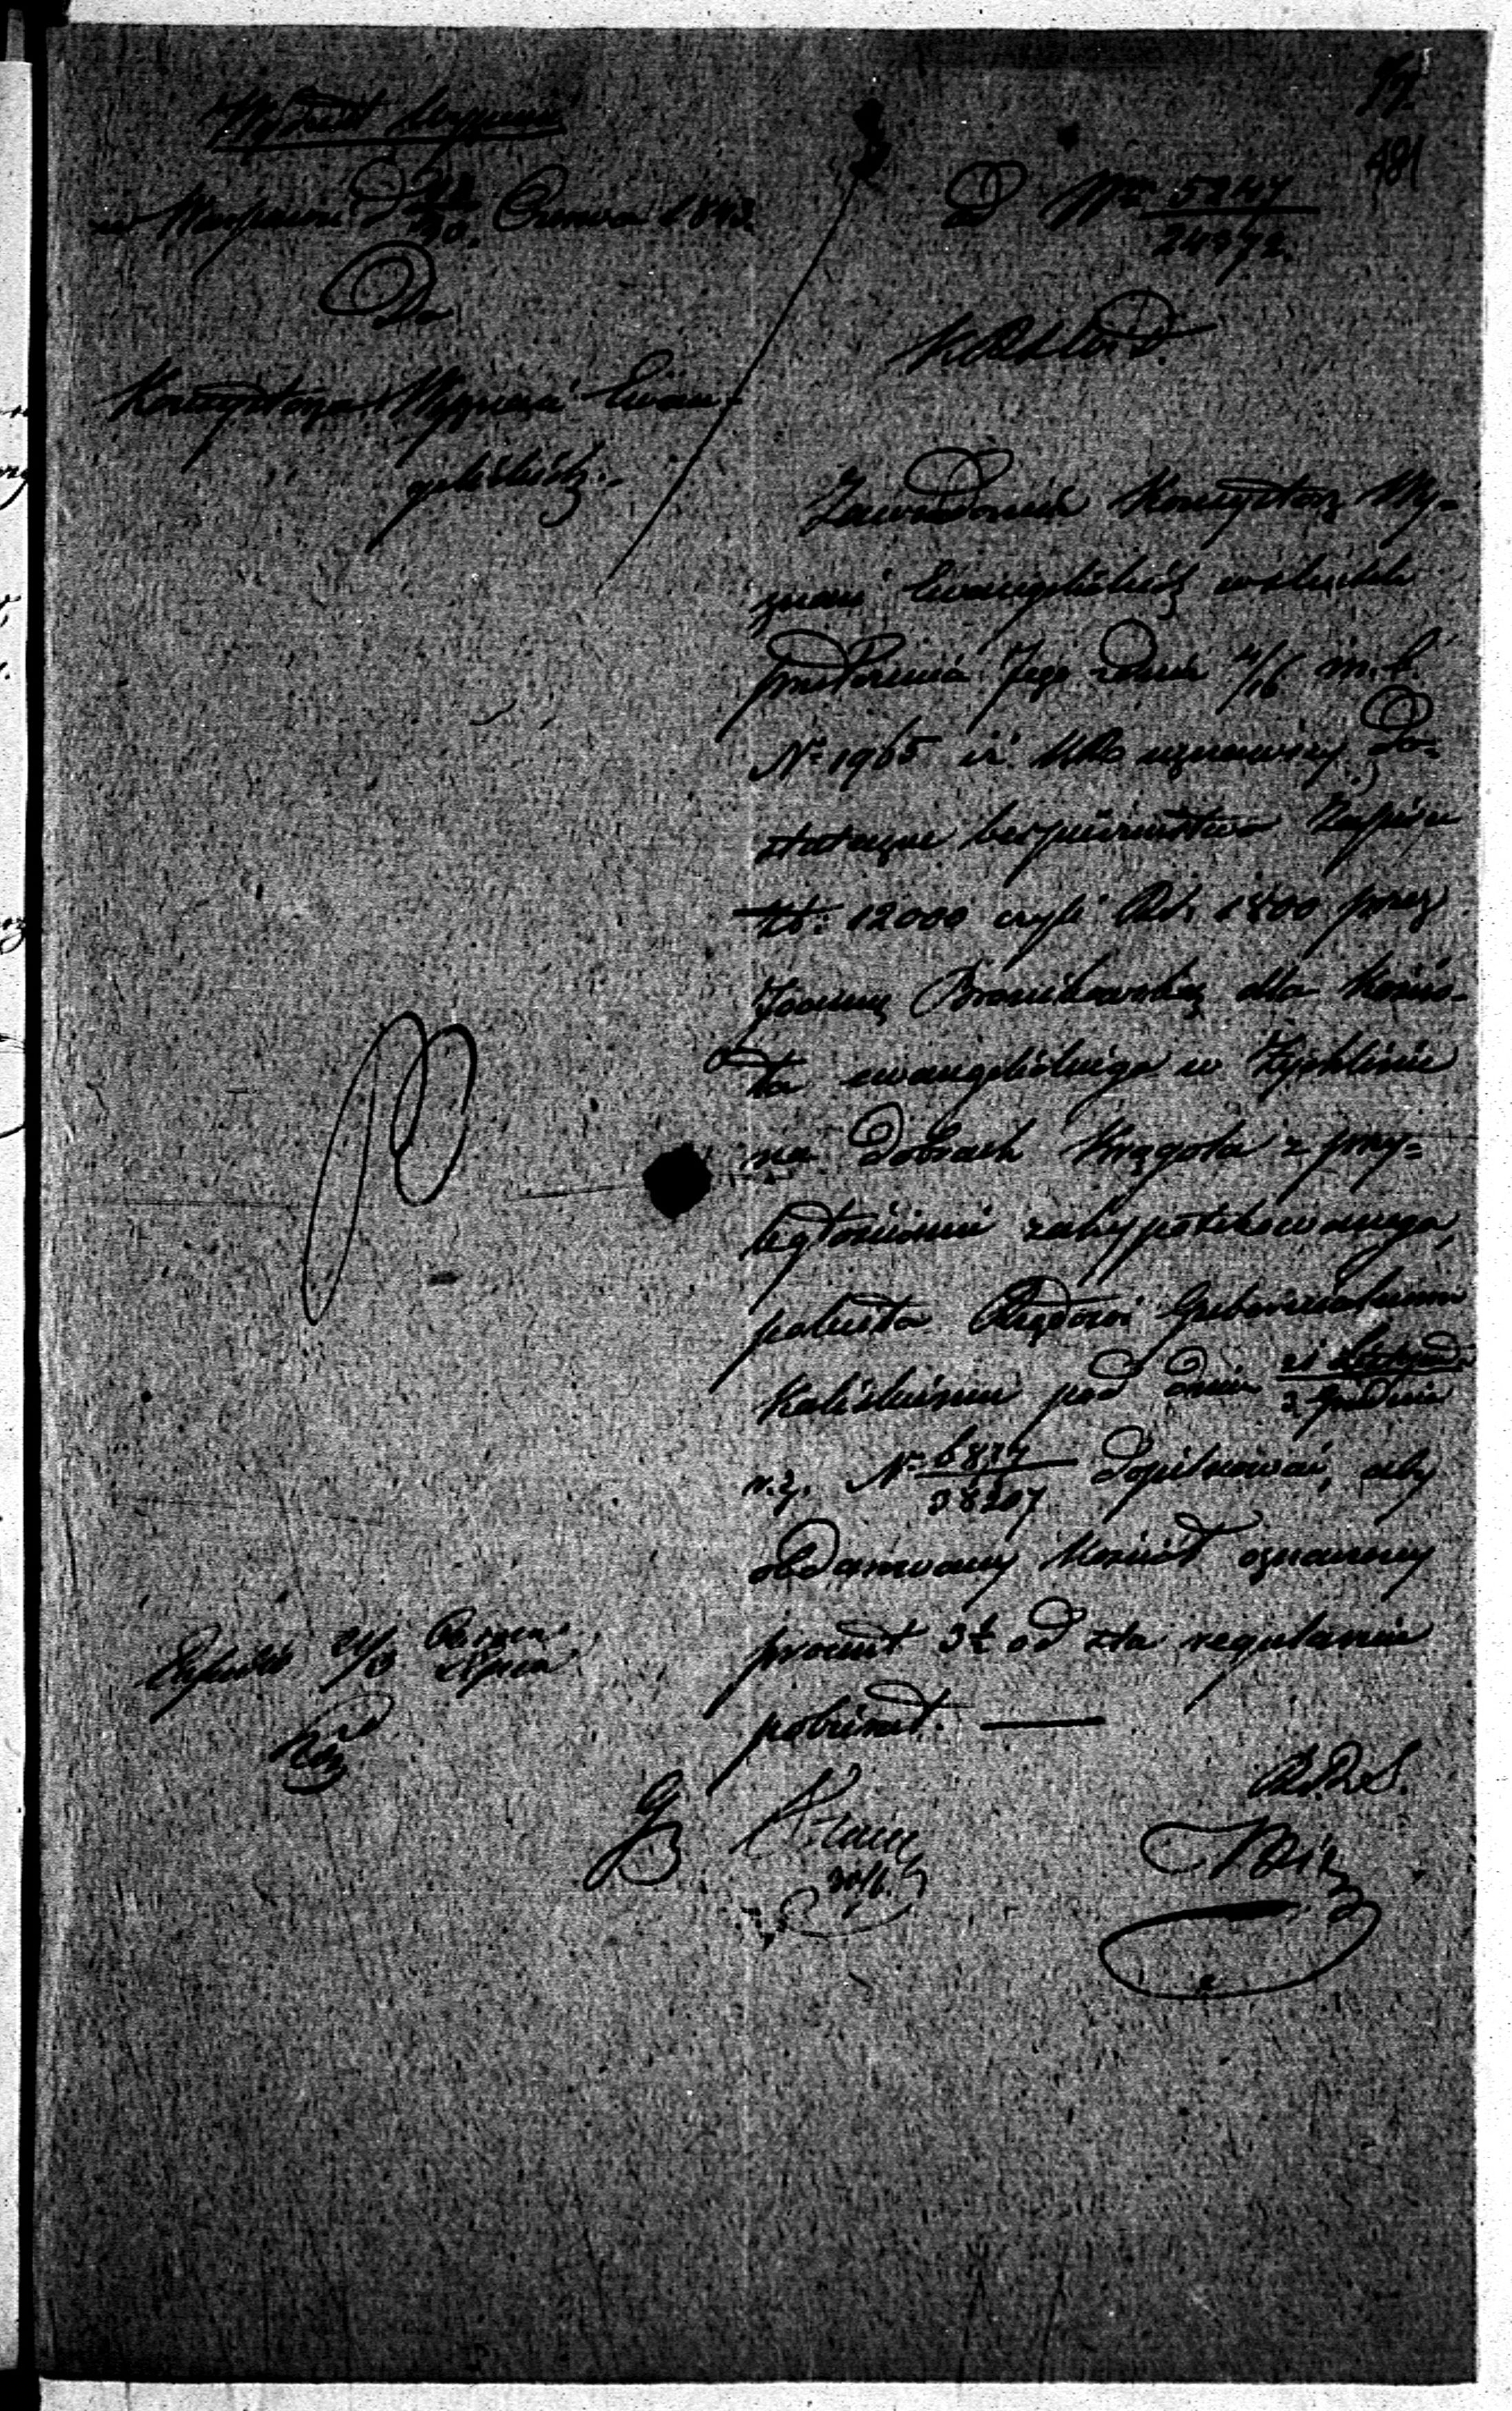 Wydział Wyznań
w Warszawie d 18/30. Czerwca 1843.
Do
Konsystorza Wyznań Ewan-
gelickich.
481
ad Nrm 5247/24972.
Zawiadomić Konsystorz Wy-
znań Ewangelickich w skutek
przedstawienia Jego z dnia 4/16 m. b.
Nr 1965 iż KR uznawszy do-
stateczne bezpieczeństwo Zapisu
Zł: 12000 czyli Rs. 1800 przez
Joannę Bronikowską dla Kościo-
ła ewangelickiego w Żychlinie
na dobrach Krągola z przy-
ległościami zahypotekowanego,
poleciła Rządowi Gubernialnemu
Kaliskiemu pod dniem 21 Listopada/3 Grudnia
r. z. Nr 6874/38207 dopilnować, aby
obdarowany Kościół oznaczony
procent 3½ od sta regularnie
pobierał. —
24/6 Czerwca/Lipca